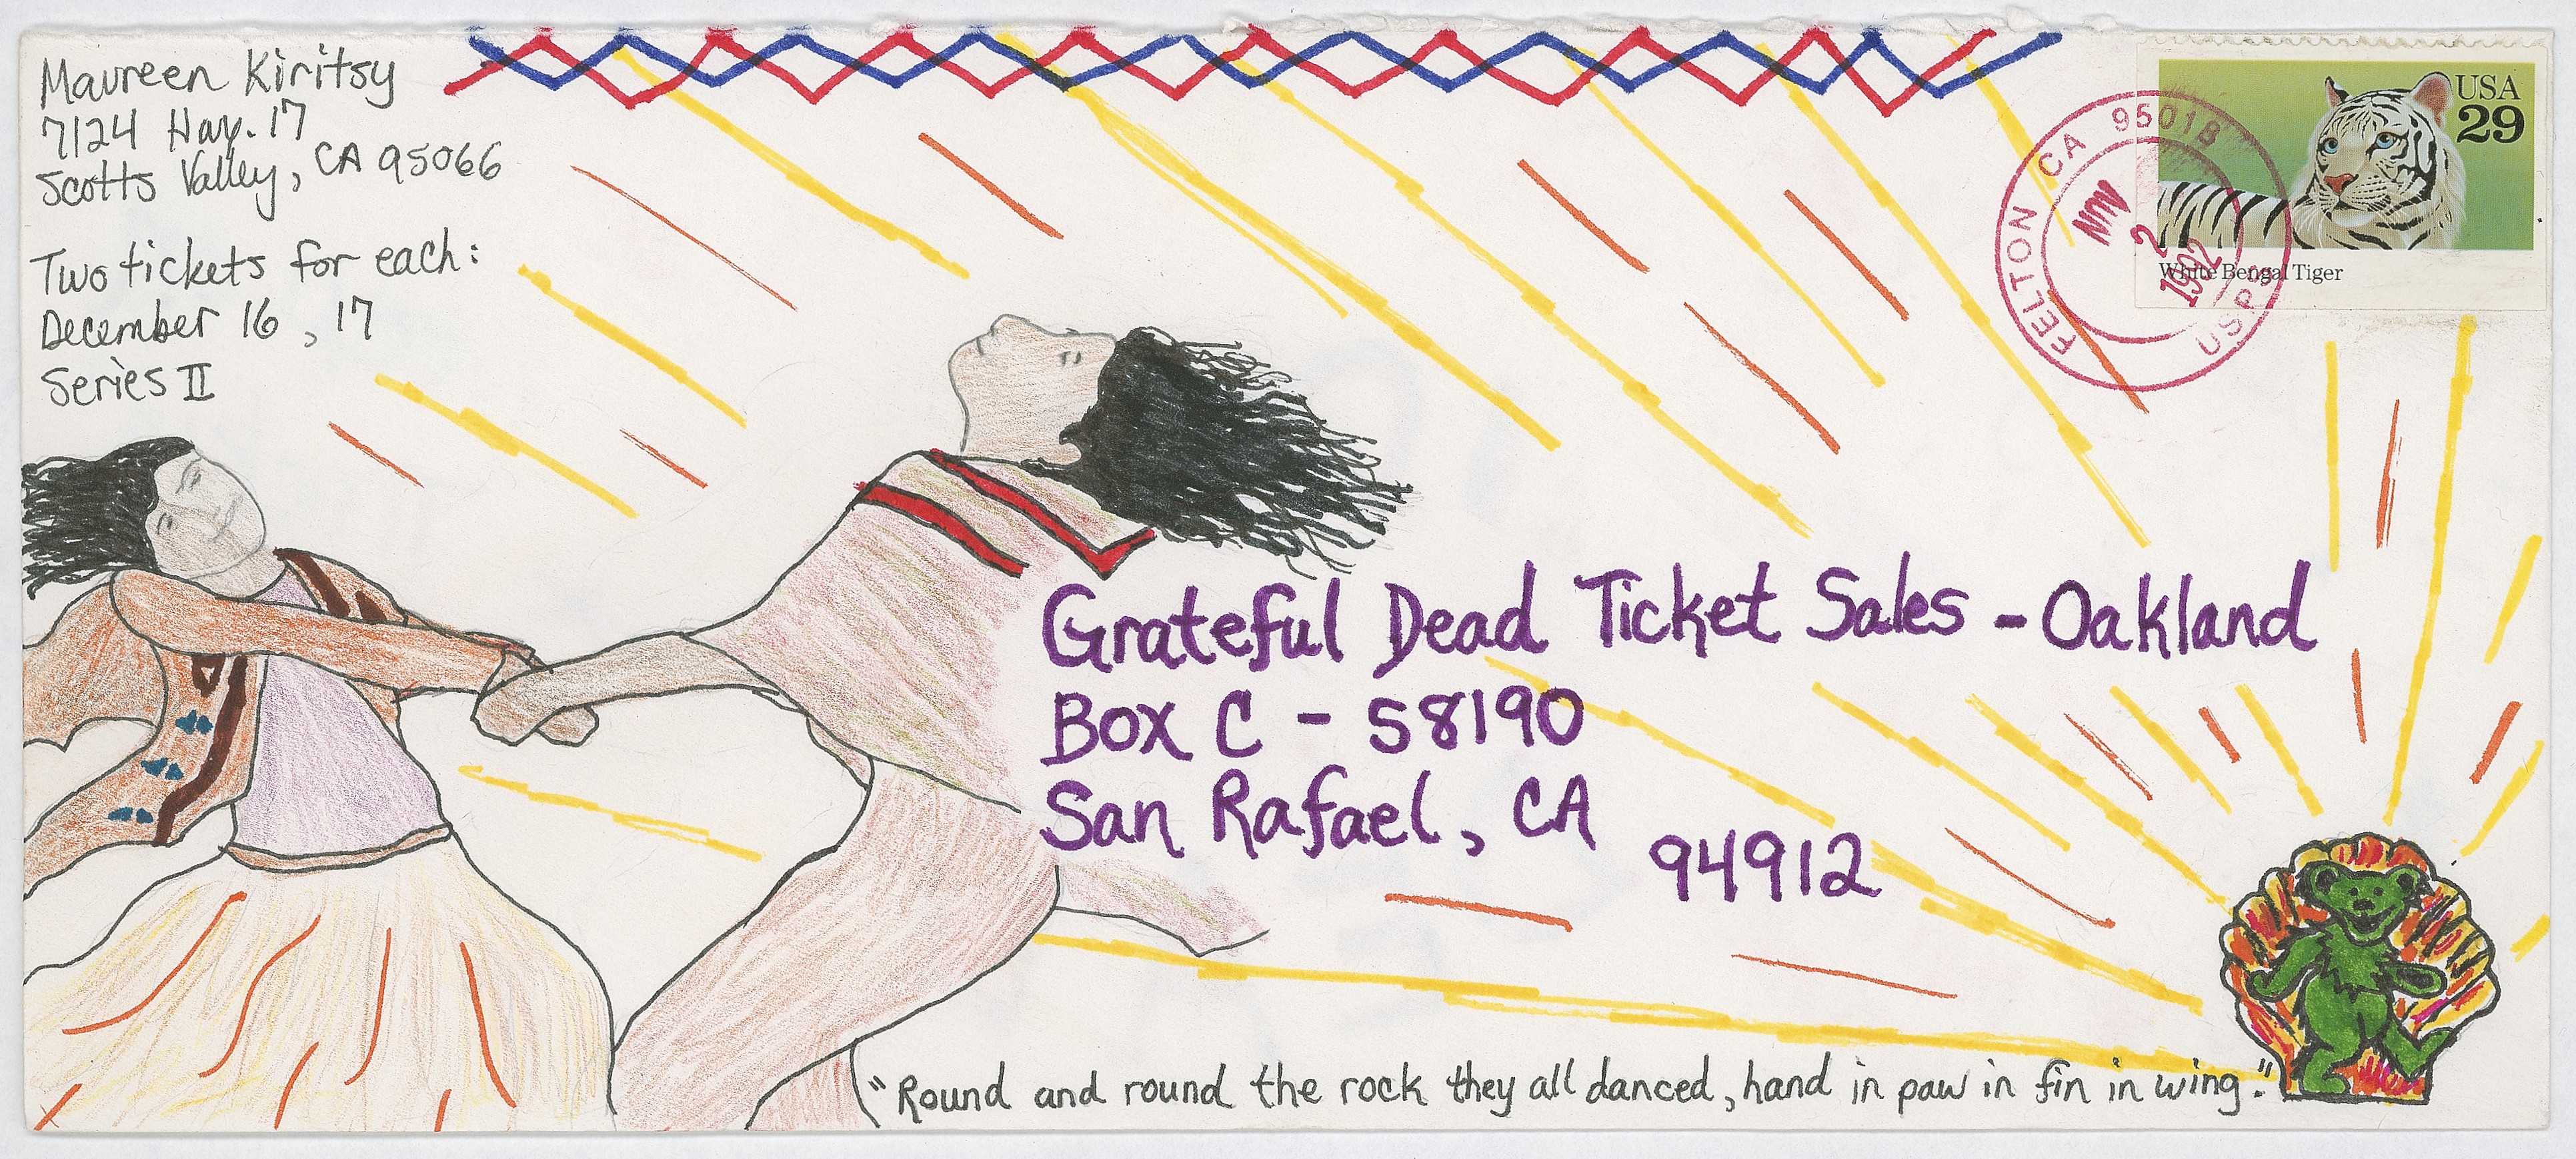 Maureen Kiritsy
7124 Hwy. 17
Scotts Valley, CA 95066
Two tickets for each:
December 16, 17
Series II
USA
29
White Bengal Tiger
FELTON CA 95018
NOV
2
1992
USPS
Grateful Dead Ticket Sales - Oakland
Box C - 58190
San Rafael, CA
94912
"Round and round the rock they all danced, hand in paw in fin in wing."